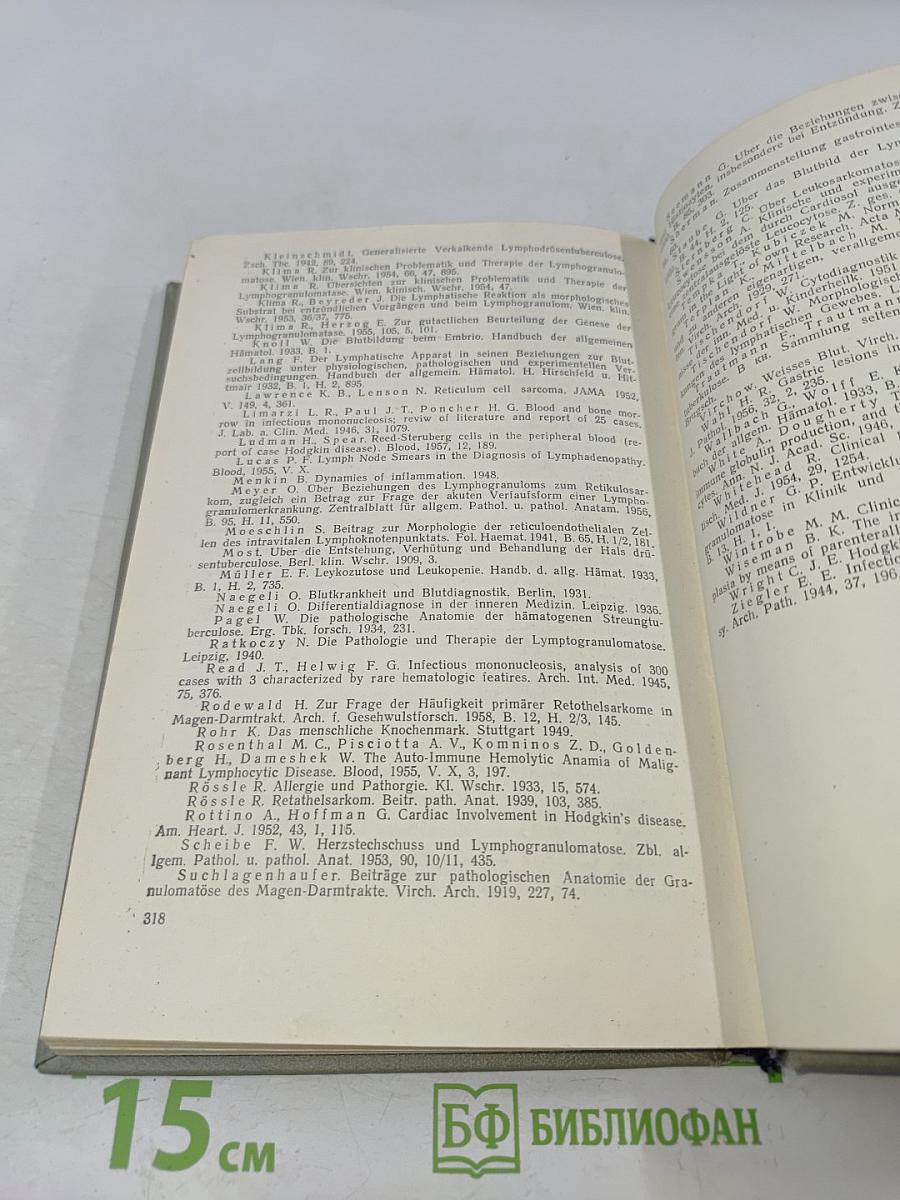 Kleinschmidt. Generalisierte Verkalkende Lymphodrüsentuberculose.
Zsch. Tbc. 1942, 89, 224.
Klima R. Zur klinischen Problematik und Therapie der Lymphogranulo-
matose. Wien. klin. Wschr. 1954, 66, 47, 895.
Klima R. Übersichten zur klinischen Problematik und Therapie der
Lymphogranulomatase. Wien. klinisch. Wschr. 1954, 47.
Klima R., Beyreder J. Die Lymphatische Reaktion als morphologisches
Substrat bei entzündlichen Vorgängen und beim Lymphogranulom. Wien. klin.
Wschr. 1953, 36/37, 775.
Klima R., Herzog E. Zur gutachtlichen Beurteilung der Genese der
Lymphogranulomatase. 1955, 105, 5, 101.
Knoll W. Die Blutbildung beim Embrio. Handbuch der allgemeinen
Hämatol. 1933, B. 1.
Lang F. Der Lymphatische Apparat in seinen Beziehungen zur Blut-
zellbildung unter physiologischen, pathologischen und experimentellen Ver-
suchsbedingungen. Handbuch der allgemein. Hämatol. H. Hirschfeld u. Hit-
tmair 1932, B. 1, H. 2, 895.
Lawrence K. B., Lenson N. Reticulum cell sarcoma. JAMA 1952,
V. 149, 4, 361.
Limarzi L. R., Paul J. T., Poncher H. G. Blood and bone mor-
row in infectious mononucleosis; reviw of literature and report of 25 cases.
J. Lab. a. Clin. Med. 1946, 31, 1079.
Ludman H., Spear. Reed-Steruberg cells in the peripheral blood (re-
port of case Hodgkin disease). Blood, 1957, 12, 189.
Lucas P. F. Lymph Node Smears in the Diagnosis of Lymphadenopathy.
Blood, 1955, V. X.
Menkin B. Dynamics of inflammation. 1948.
Meyer O. Über Beziehungen des Lymphogranuloms zum Retikulosar-
kom, zugleich ein Betrag zur Frage der akuten Verfaufsform einer Lympho-
granulomerkrankung. Zentralblatt für allgem. Pathol. u. pathol. Anatam. 1956,
B. 95, H. 11, 550.
Moeschlin S. Beitrag zur Morphologie der reticuloendothelialen Zel-
len des intravitalen Lymphoknotenpunktats. Fol. Haemat. 1941, B. 65, H. 1/2, 181.
Most. Uber die Entstehung, Verhütung und Behandlung der Hals drü-
sentuberculose. Berl. klin. Wschr. 1909, 3.
Müller E. F. Leykozutose und Leukopenie. Handb. d. allg. Hämat. 1933,
B. 1, H. 2, 735.
Naegeli O. Blutkrankheit und Blutdiagnostik. Berlin, 1931.
Naegeli O. Differentialdiagnose in der inneren Medizin. Leipzig. 1936.
Pagel W. Die pathologische Anatomie der hämatogenen Streungtu-
berculose. Erg. Tbk. forsch. 1934, 231.
Ratkoczy N. Die Pathologie und Therapie der Lymptogranulomatose.
Leipzig, 1940.
Read J. T., Helwig F. G. Infectious mononucleosis, analysis of 300
cases with 3 characterized by rare hematologic featires. Arch. Int. Med. 1945,
75, 376.
Rodewald H. Zur Frage der Häufigkeit primärer Retothelsarkome in
Magen-Darmtrakt. Arch. f. Gesehwulstforsch. 1958, B. 12, H. 2/3, 145.
Rohr K. Das menschliche Knochenmark. Stuttgart 1949.
Rosenthal M. C., Pisciotta A. V., Komninos Z. D., Golden-
berg H., Dameshek W. The Auto-Immune Hemolytic Anamia of Malig-
nant Lymphocytic Disease. Blood, 1955, V. X, 3, 197.
Rössle R. Allergie und Pathorgie. Kl. Wschr. 1933, 15, 574.
Rössle R. Retathelsarkom. Beitr. path. Anat. 1939, 103, 385.
Rottino A., Hoffman G. Cardiac Involvement in Hodgkin's disease.
Am. Heart. J. 1952, 43, 1, 115.
Scheibe F. W. Herzstechschuss und Lymphogranulomatose. Zbl. al-
lgem. Pathol. u. pathol. Anat. 1953, 90, 10/11, 435.
Suchlagenhaufer. Beiträge zur pathologischen Anatomie der Gra-
nulomatöse des Magen-Darmtrakte. Virch. Arch. 1919, 227, 74.
318
Seemann G. Uber die Beziehungen zwis
insbesondere bei Entzündung. Z
303.
Zusammenstellung gastrointes
G. Uber das Blutbild der Lym
44, H. 2, 125.
Sternberg C. Ober Leukosarkomatos
A. Klinische und experim
bei dem durch Cardiosol ausge
Leucocytose. Z. ges.
Kubiczek M. Norm
in the Light of own Research. Acta M
K., Mittelbach M.
zu anderen eigenartigen, verallgeme
Virch. Arch. 1959, 271
W. Cytodiagnostik
der inn. Med. u. Kinderheilk. 1951
Tischendorf W. Morphologisch
des lymphatischen Gewebes.
Trautmann F.
tuberkulose. B кн. Sammlung selten
Virchow. Weisses Blut. Virch.
Wahl H. R. Gastric lesions in
Pathol. 1956, 32, 2, 235.
Wallbach G., Wolff E. K
der allgem. Hämatol. 1933, B.
White A., Dougherty T
immune globulin production, and t
cytes. Ann. N. J. Acad. Sc. 1946,
Whitehead R. Clinical
Med. J. 1954, 29, 1254.
Wildner G. P. Entwicklu
granulomatose in Klinik und
B. 13, H. 1, 1.
Wintrobe M. M. Clinic
Wiseman B. K. The in
plasia by means of parenterall
Wright C. J. E. Hodgki
Ziegler E. E. Infectio
sy. Arch. Path. 1944, 37, 196.
15 см
БФ БИБЛИОФАН